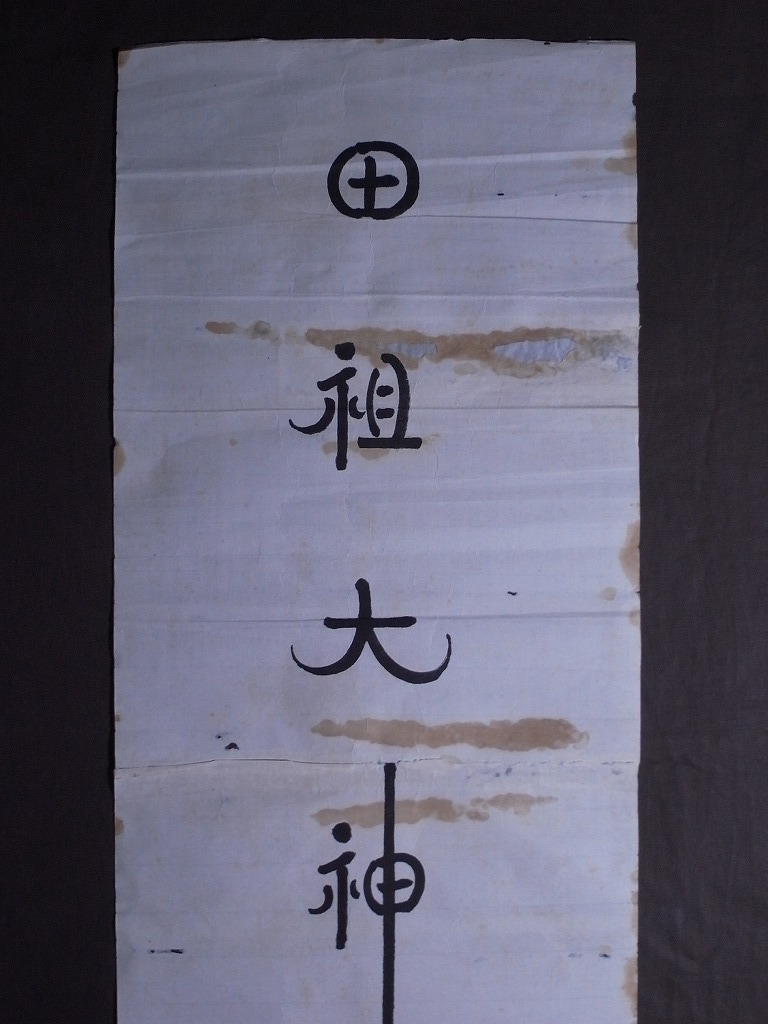 田祖大神